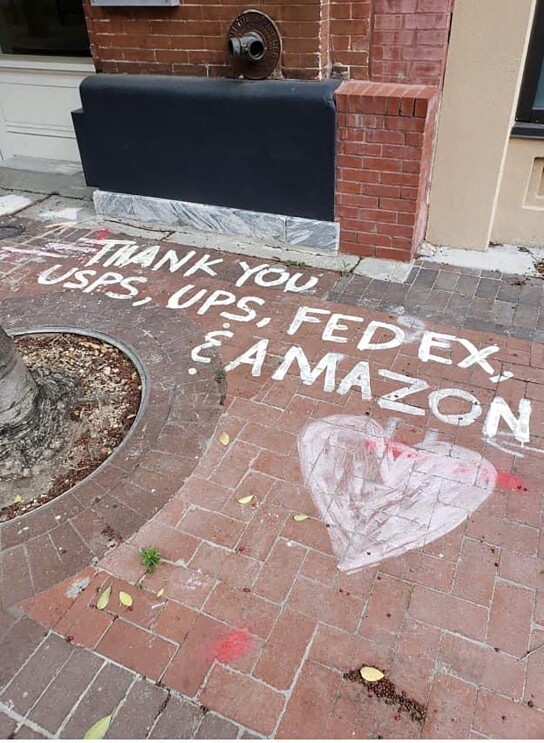 THANK YOU
USPS, UPS, FEDEX,
& AMAZON